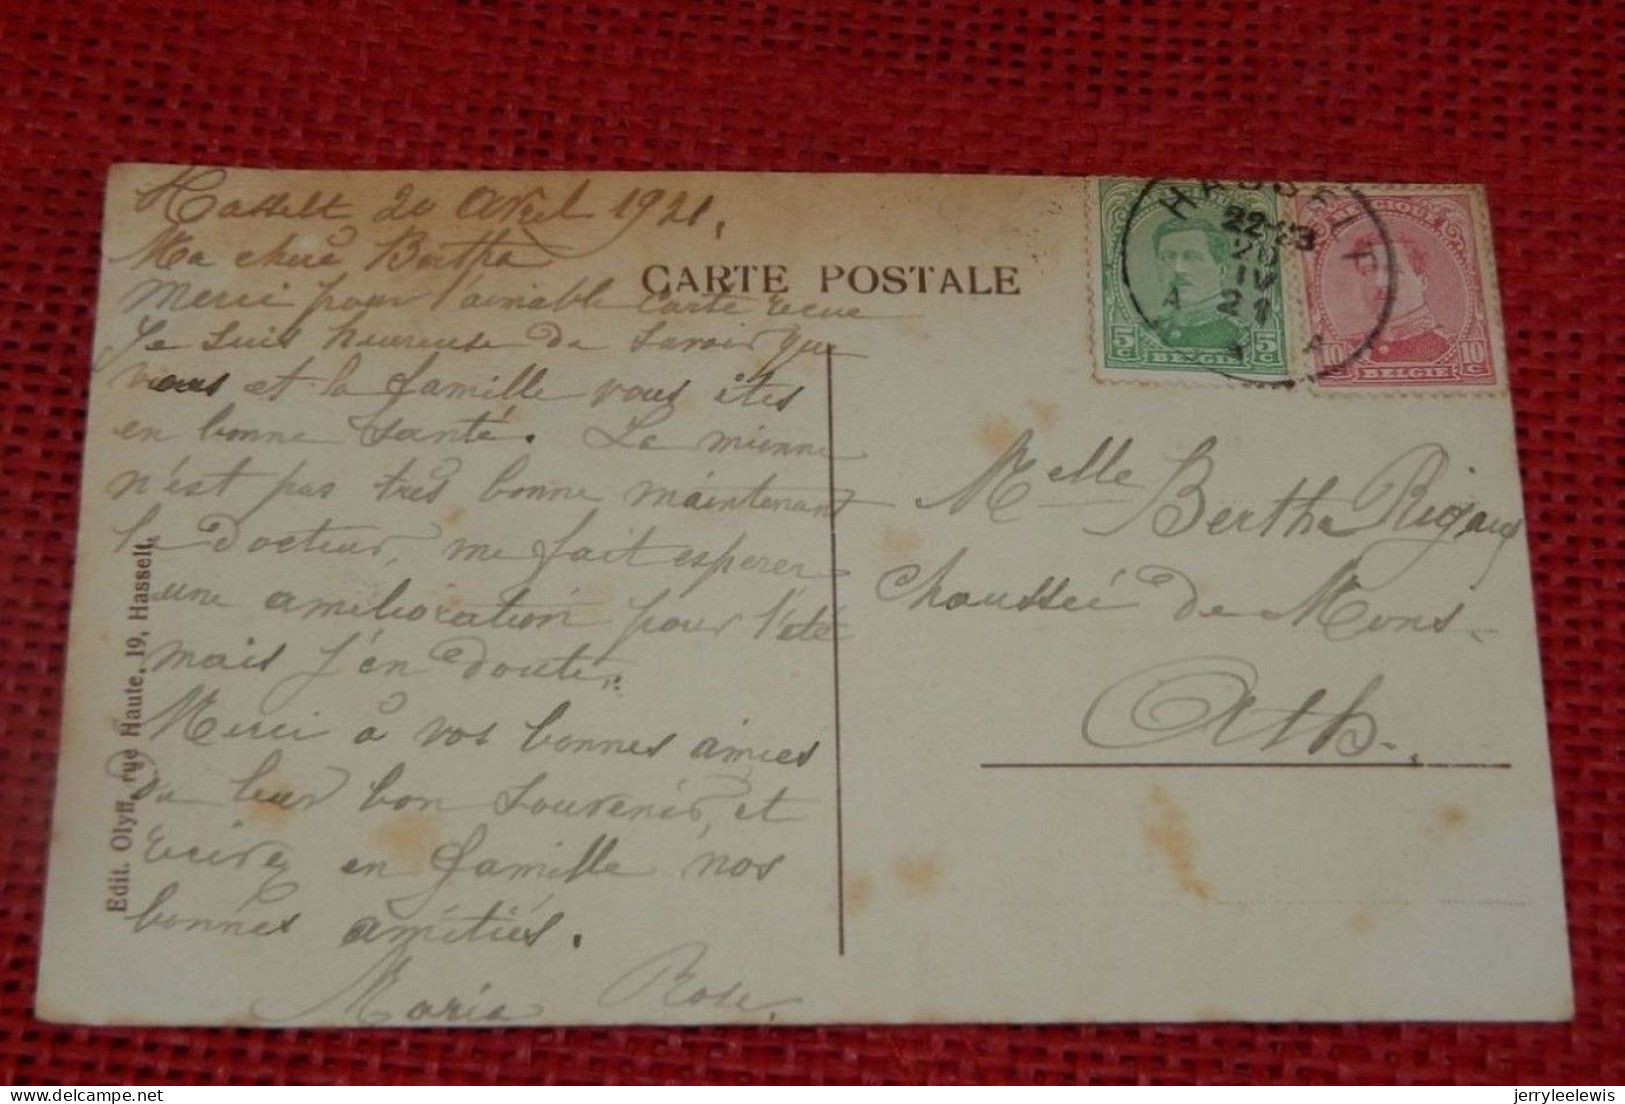 Hasselt 20 Avril 1921.
Ma chère Bertha
Merci pour l'amiable carte recue
Je suis heureuse de savoir que
vous et la famille vous êtes
en bonne santé. La mienne
n'est pas très bonne maintenant
le docteur, me fait esperer
une amélioration pour l'été
mais j'en doute.
Merci à vos bonnes amies
du leur bon souvenir, et
en famille nos
bonnes amitiés.
Maria Rose.
Edit. Olyff, rue Haute, 19, Hasselt.
CARTE POSTALE
HASSELT
22-23
20
IV
21
A A
5c BELGIË 5c
BELGIQUE
10c BELGIE 10c
Melle Bertha Rigaux
Chaussée de Mons.
Ath.
jerryleelewis